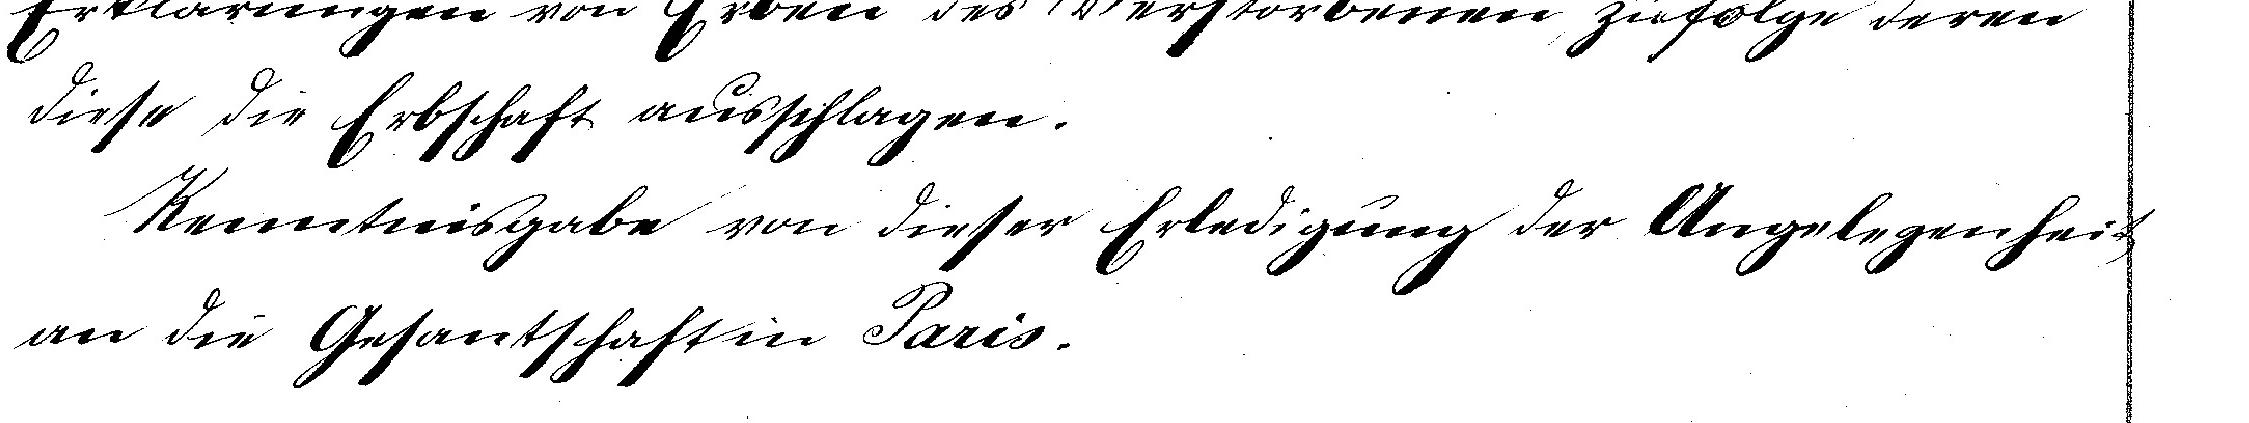 Erklärungen von Erben des Verstorbenen, zufolge deren
diese die Erbschaft ausschlagen.
Kenntnisgabe von dieser Erledigung der Angelegenheit
an die Gesantschaft in Paris.